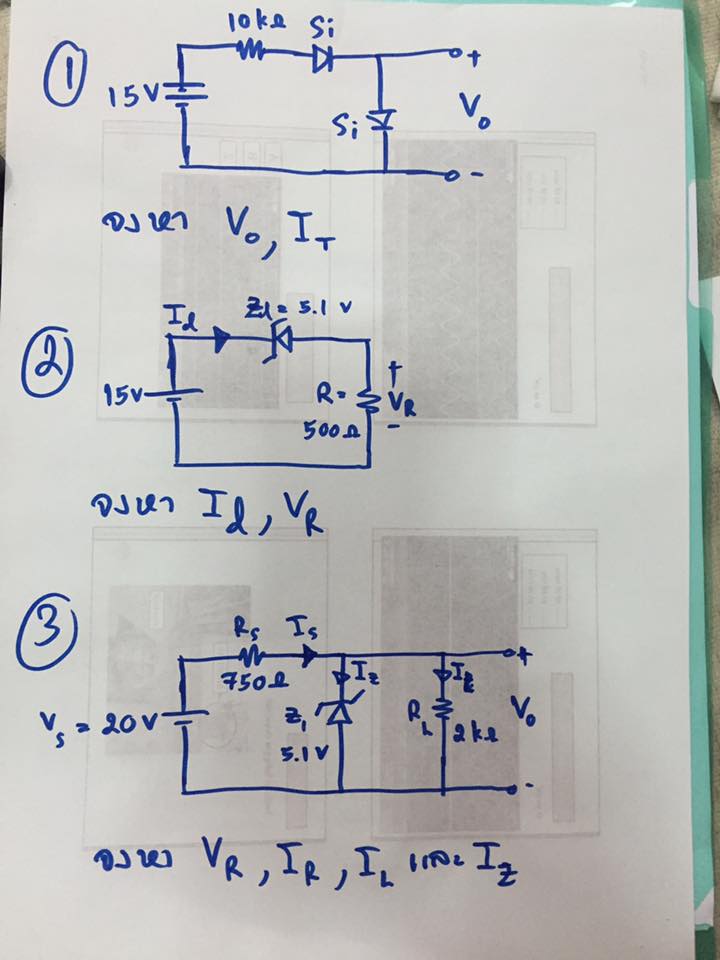 ①
10kΩ Si
15V
Si
+
V₀
-
จงหา V₀, I_T
②
I_d Zd = 5.1 V
15V
R=
500Ω
+
V_R
-
จงหา I_d, V_R
③
R_s I_s
750Ω
V_s = 20V
I_z
Z₁
5.1V
R_L
2kΩ
+
V₀
-
จงหา V_R, I_R, I_L และ I_Z